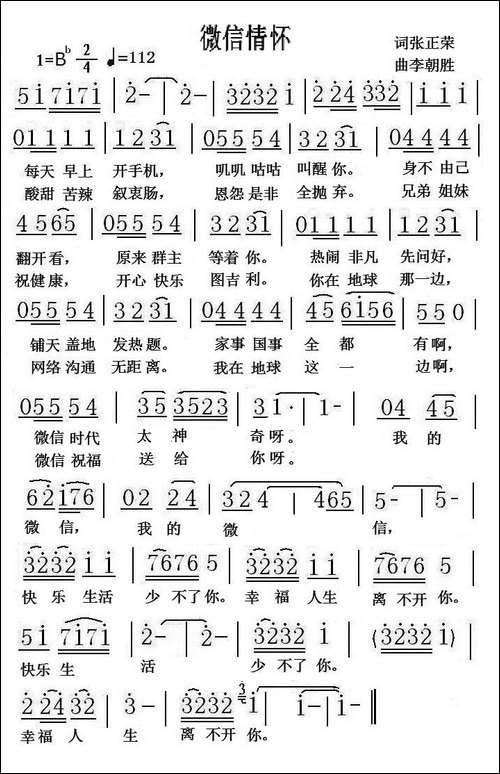 微信情怀
1=B♭ 2/4 ♩=112
词张正荣
曲李朝胜
5i 7i7i | 2- | 2- | 3232 i | 2 24 332 | i i i |
01 1 1 1 | 1 2 31 | 05 5 5 4 | 3 2 31 | 04 4 4 4 |
每天 早上 开手机， 叽叽 咕咕 叫醒 你。 身不 由己
酸甜 苦辣 叙衷肠， 恩怨 是非 全抛 弃。 兄弟 姐妹
4 5 65 | 05 5 5 4 | 3 2 31 | 01 1 1 1 | 1 2 31 |
翻开看， 原来 群主 等着 你。 热闹 非凡 先问好，
祝健康， 开心 快乐 图吉 利。 你在 地球 那一边，
05 5 5 4 | 3 2 31 | 04 4 4 4 | 45 6i56 | 5 5 0 |
铺天 盖地 发热 题。 家事 国事 全 都 有啊，
网络 沟通 无距 离。 我在 地球 这 一 边啊，
05 5 5 4 | 35 3523 | 31· | 1- | 04 45 |
微信 时代 太 神 奇呀。 我 的
微信 祝福 送 给 你呀。
62 i76 | 02 24 | 324 | 465 | 5- | 5- |
微 信， 我 的 微 信，
3232 i i | 7676 5 | 3232 i i | 7676 5 |
快 乐 生活 少 不了 你。 幸 福 人生 离 不开 你。
5i 7i7i | 2- | 2- | 3232 i | (3232 i) |
快乐 生 活 少 不了 你。
2 24 32 | 3- | 3232 i | i- | i- ‖
幸福 人 生 离 不开 你。